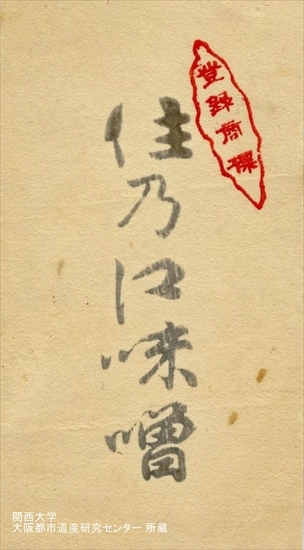 登録商標
住乃江味噌
関西大学
大阪都市遺産研究センター 所蔵